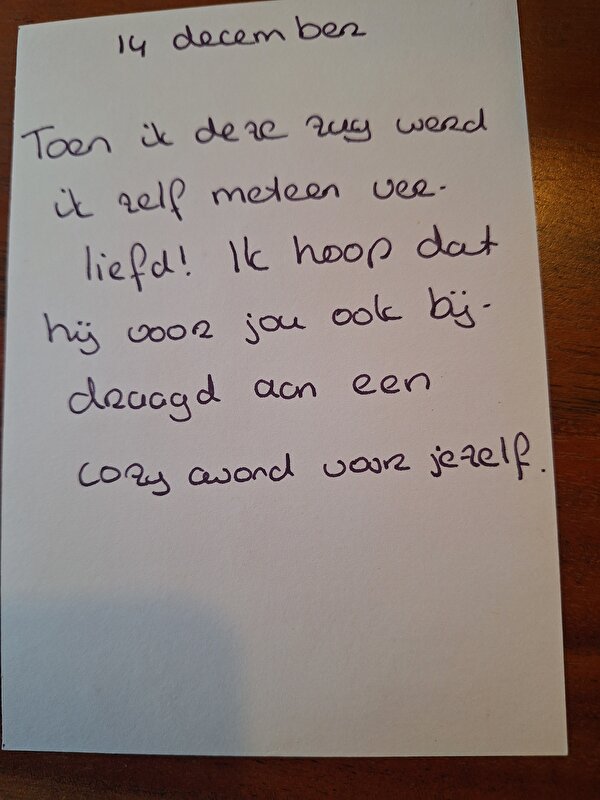 14 december
Toen ik deze zug werd
ik zelf meteen ver-
liefd! Ik hoop dat
hij voor jou ook bij-
draagd aan een
cozy avond voor jezelf.